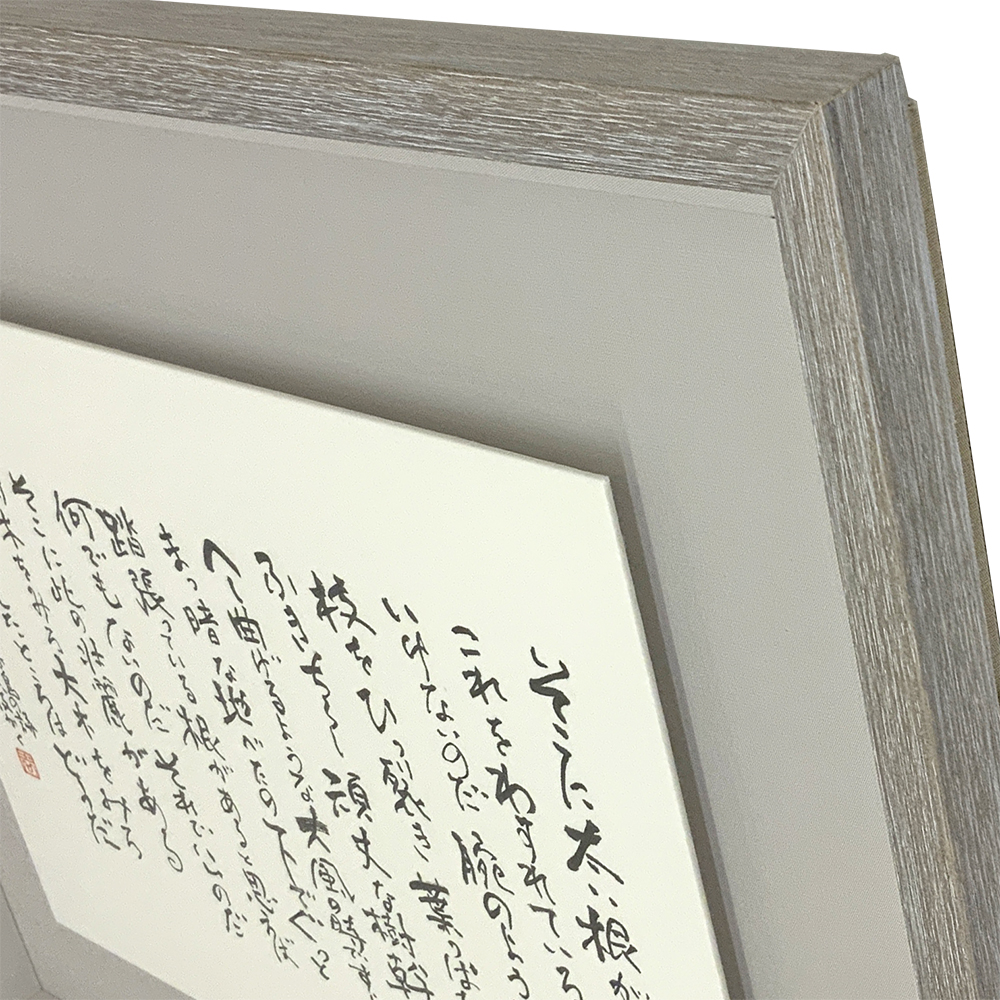 そこに太い根が
これをわすれている
いけないのだ 腕のよう
枝をひっ裂き 葉っぱ
ふきちらし 頑丈な樹幹
へし曲げるような大風の時ですら
まっ暗な地べたの下でぐっと
踏張っている根があると思えば
何でもないのだ それでいいのだ
そこに此の壮麗がある
樹木をみろ 大木をみろ
したところはどうだ